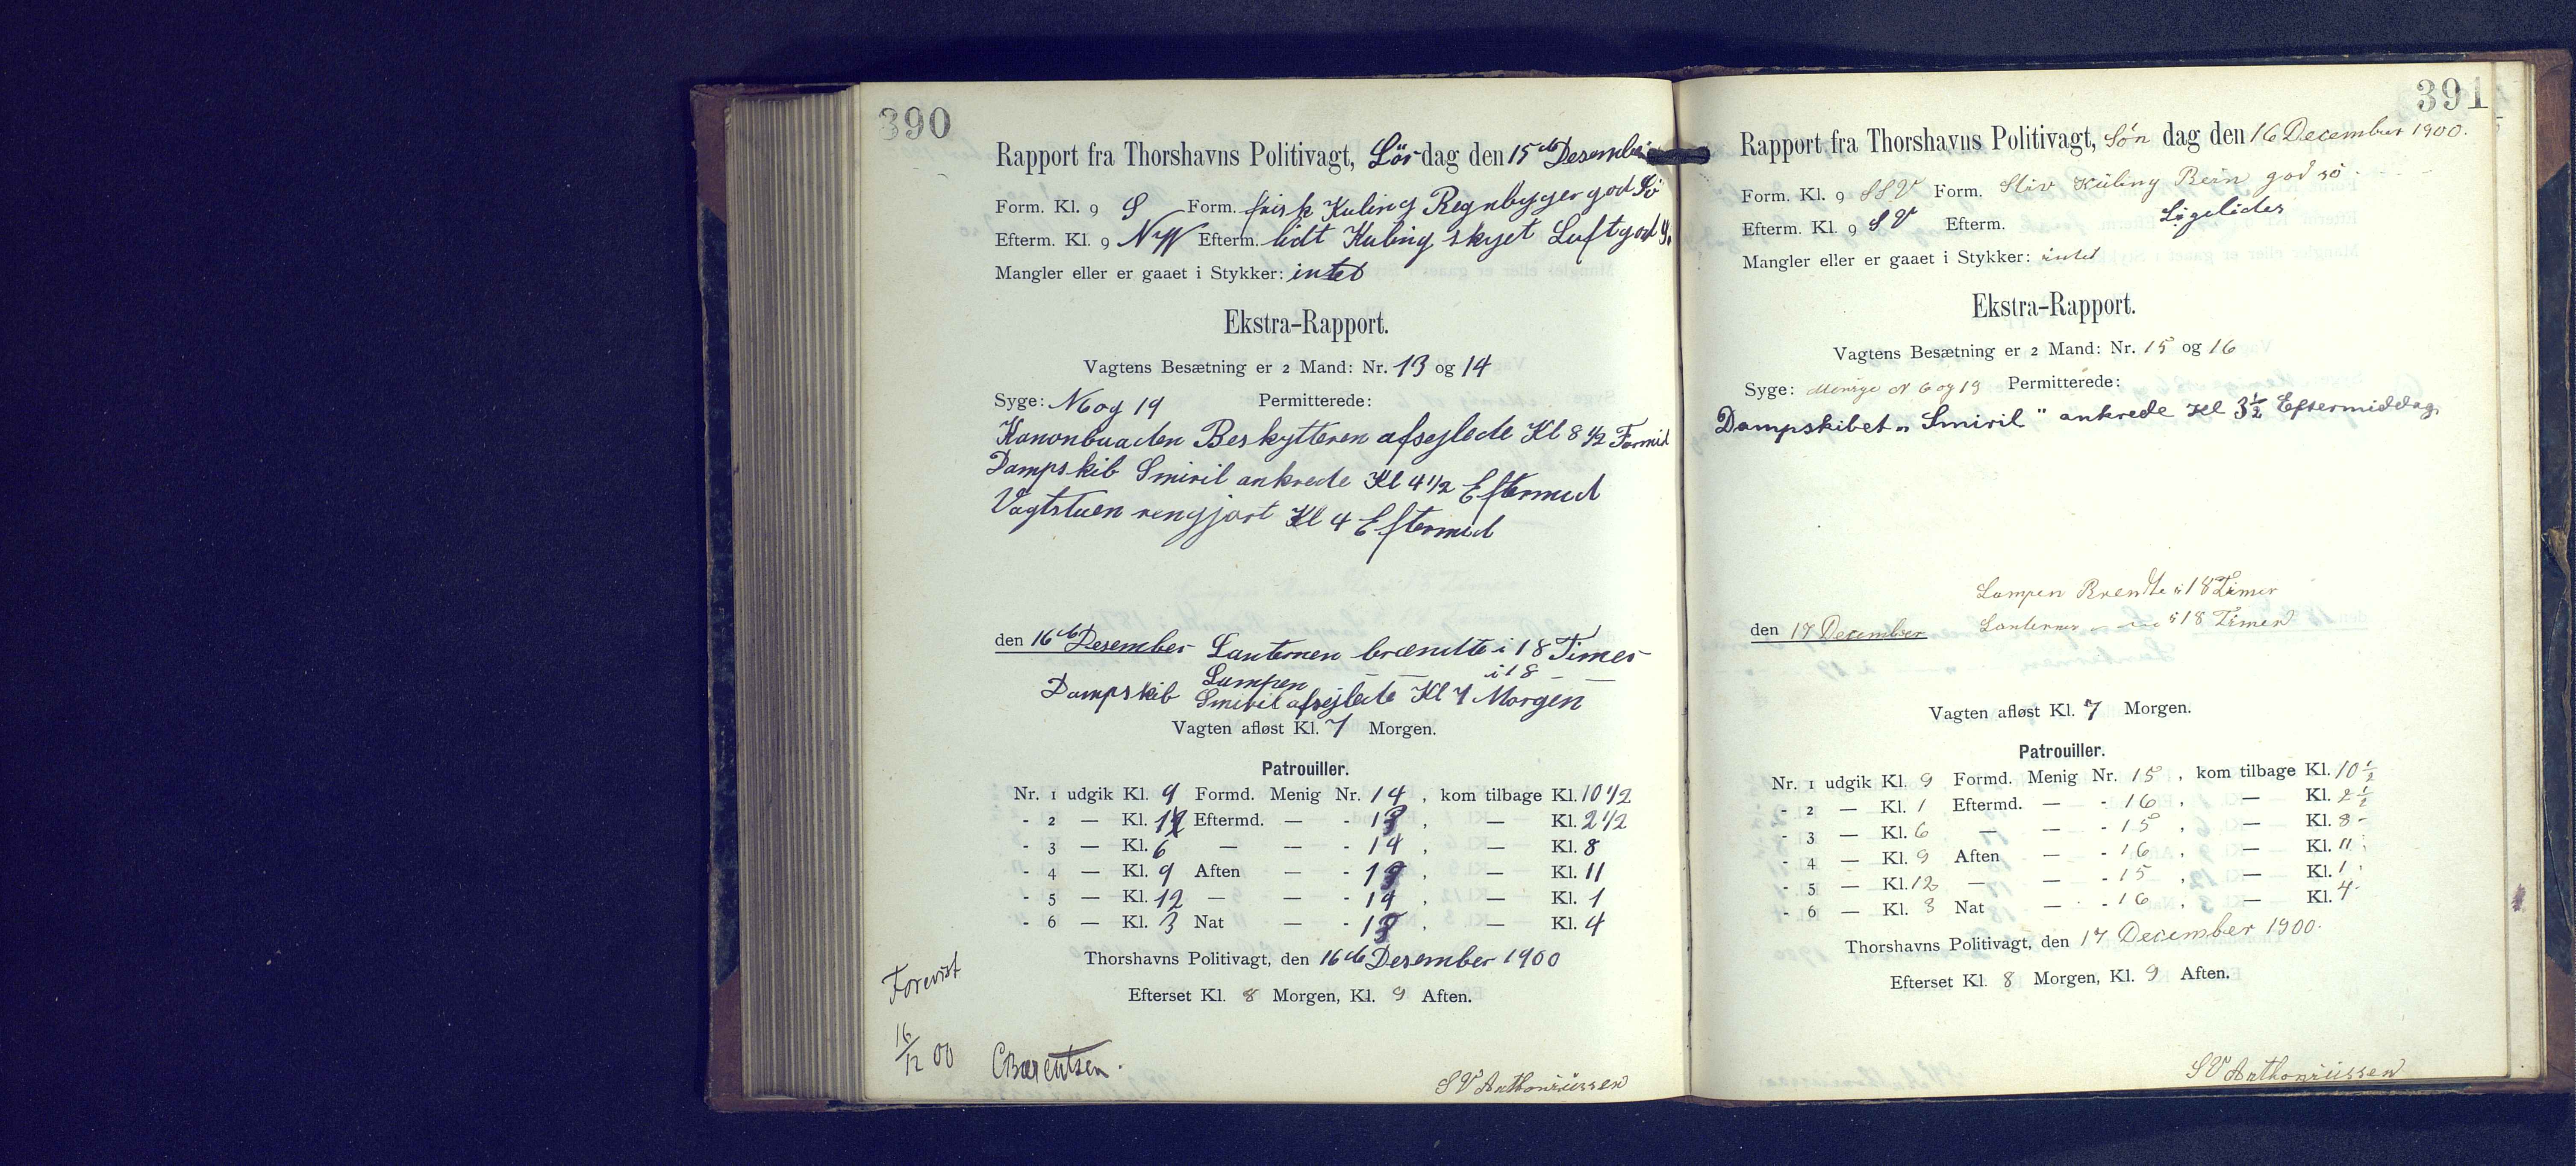 390
Rapport fra Thorshavns Politivagt, Lör dag den 15de Desember
Form. Kl. 9 S Form. frisk Kuling Regnbyger god Sö
Efterm. Kl. 9 NW Efterm. lidt Kuling skyet Luft god S.
Mangler eller er gaaet i Stykker: intet
Ekstra-Rapport.
Vagtens Besætning er 2 Mand: Nr. 13 og 14
Syge: N 6 og 19 Permitterede:
Kanonbaaden Beskytteren afsejlede Kl 8 1/2 Formid
Dampskib Smiril ankrede Kl 4 1/2 Eftermid
Vagtstuen rengjort Kl 4 Eftermid
den 16de Desember Lanternen brændte i 18 Timer
Lampen — — i 18 — —
Dampskib Smiril afsejlede Kl 7 Morgen
Vagten afløst Kl. 7 Morgen.
Patrouiller.
Nr. 1 udgik Kl. 9 Formd. Menig Nr. 14, kom tilbage Kl. 10 1/2
- 2 — Kl. 1 Eftermd. — - 13, — Kl. 2 1/2
- 3 — Kl. 6 — — - 14, — Kl. 8
- 4 — Kl. 9 Aften — - 13, — Kl. 11
- 5 — Kl. 12 — — - 14, — Kl. 1
- 6 — Kl. 3 Nat — - 13, — Kl. 4
Thorshavns Politivagt, den 16de Desember 1900
Efterset Kl. 8 Morgen, Kl. 9 Aften.
Forevist
16/12 00 CBærentsen.
SV Anthoniussen
391
Rapport fra Thorshavns Politivagt, Søn dag den 16 December 1900.
Form. Kl. 9 SSV Form. Stiv Kuling Rein god sö.
Efterm. Kl. 9 SV Efterm. Ligeledes
Mangler eller er gaaet i Stykker: intet
Ekstra-Rapport.
Vagtens Besætning er 2 Mand: Nr. 15 og 16
Syge: Menige N 6 og 19 Permitterede:
Dampskibet „Smiril" ankrede Kl 3 1/2 Eftermiddag
Lampen Brendte i 18 Timer
den 17 December Lanternen — — i 18 Timer
Vagten afløst Kl. 7 Morgen.
Patrouiller.
Nr. 1 udgik Kl. 9 Formd. Menig Nr. 15, kom tilbage Kl. 10 1/2
- 2 — Kl. 1 Eftermd. — - 16, — Kl. 2 1/2
- 3 — Kl. 6 — — - 15, — Kl. 8 -
- 4 — Kl. 9 Aften — - 16, — Kl. 11
- 5 — Kl. 12 — — - 15, — Kl. 1
- 6 — Kl. 3 Nat — - 16, — Kl. 4
Thorshavns Politivagt, den 17 December 1900.
Efterset Kl. 8 Morgen, Kl. 9 Aften.
SV Anthoniussen